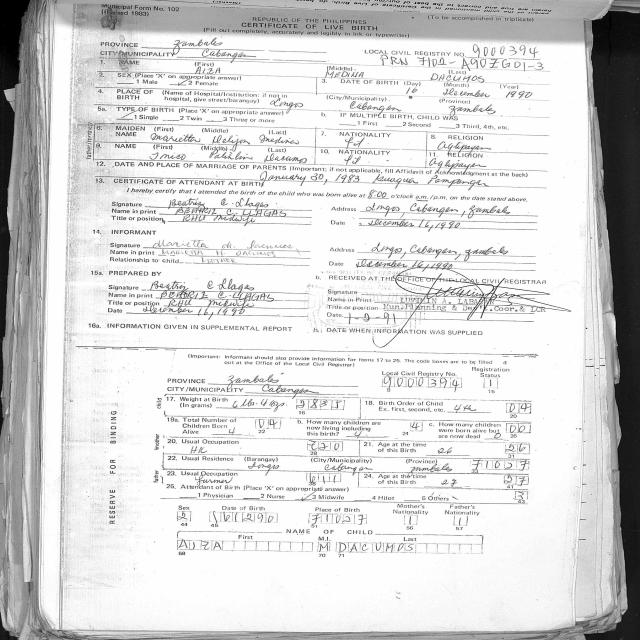 Municipal Form No. 102
(Revised 1983)
(To be accomplished in triplicate)
REPUBLIC OF THE PHILIPPINES
CERTIFICATE OF LIVE BIRTH
(Fill out completely, accurately and legibly in ink or typewriter)
PROVINCE Zambales
CITY/MUNICIPALITY Cabangan LOCAL CIVIL REGISTRY NO. 9000394
1. NAME (First) AIZA (Middle) MEDINA (Last) DACUMOS
2. SEX (Place 'X' on appropriate answer) 1 Male 2 Female 3. DATE OF BIRTH (Day) 16 (Month) December (Year) 1990
4. PLACE OF BIRTH (Name of Hospital/Institution: if not in hospital, give street/barangay) Longos (City/Municipality) Cabangan (Province) Zambales
5a. TYPE OF BIRTH (Place 'X' on appropriate answer) 1 Single 2 Twin 3 Three or more b. IF MULTIPLE BIRTH, CHILD WAS 1 First 2 Second 3 Third, 4th, etc.
6. MAIDEN NAME (First) (Middle) (Last) Medina 7. NATIONALITY 8. RELIGION Aglipayan
9. NAME (First) (Middle) (Last) Dacumos 10. NATIONALITY 11. RELIGION Aglipayan
12. DATE AND PLACE OF MARRIAGE OF PARENTS (Important; if not applicable, fill Affidavit of Acknowledgment at the back)
January 30, 1983 Pampanga
13. CERTIFICATE OF ATTENDANT AT BIRTH
I hereby certify that I attended the birth of the child who was born alive at 8:00 o'clock a.m./p.m. on the date stated above.
Signature Beatriz C. Llagas Address Longos, Cabangan, Zambales
Name in print BEATRIZ C. LLAGAS
Title or position RHU Midwife Date December 16, 1990
14. INFORMANT
Signature Address Longos, Cabangan, Zambales
Name in print
Relationship to child Mother Date December 16, 1990
15a. PREPARED BY b. RECEIVED AT THE OFFICE OF THE LOCAL CIVIL REGISTRAR
Signature Beatriz C Llagas Signature
Name in print BEATRIZ C. LLAGAS Name in Print
Title or position RHU Midwife Title or position Mun.Planning & Dev't.Coor.& LCR
Date December 16, 1990 Date 1-2-91
16a. INFORMATION GIVEN IN SUPPLEMENTAL REPORT b. DATE WHEN INFORMATION WAS SUPPLIED
(Important: Informants should also provide information for items 17 to 25. The code boxes are to be filled out at the Office of the Local Civil Registrar)
PROVINCE Zambales Local Civil Registry No. Registration Status
CITY/MUNICIPALITY Cabangan 9000394 1
17. Weight at Birth (In grams) 2835 18. Birth Order of Child Ex. first, second, etc. 4th 04
19a. Total Number of Children Born Alive 4 04 b. How many children now living including this birth? 4 4 c. How many children were born alive but are now dead 0 00
20. Usual Occupation HK 21. Age at the time of this Birth 26 26
22. Usual Residence (Barangay) Longos (City/Municipality) Cabangan (Province) Zambales 71027
23. Usual Occupation Farmer 24. Age at the time of this Birth 27 27
25. Attendant of Birth (Place 'X' on appropriate answer)
1 Physician 2 Nurse 3 Midwife 4 Hilot 5 Others 3
Sex Date of Birth Place of Birth Mother's Nationality Father's Nationality
2 161290 71027 1 1
NAME OF CHILD
First M.I. Last
AIZA M DACUMOS
RESERVE FOR BINDING